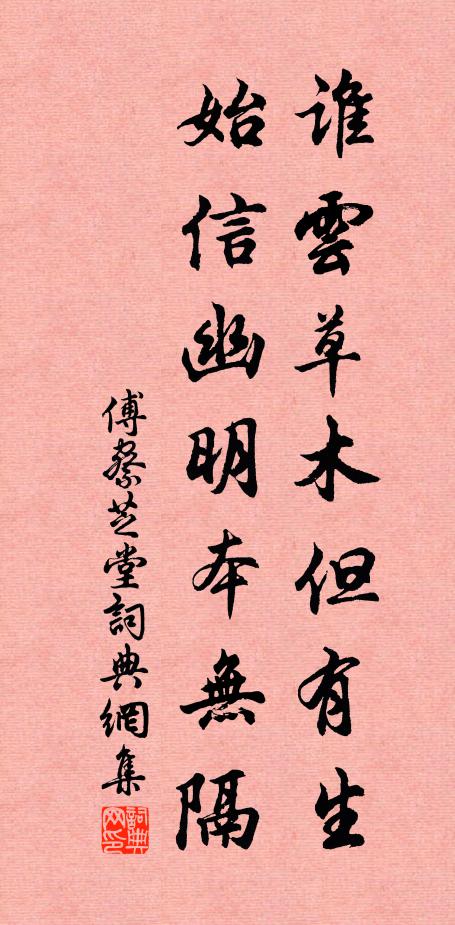 誰雲草木但有生
始信幽明本無隔
傅蔡芝堂詞典網集
詞典網印